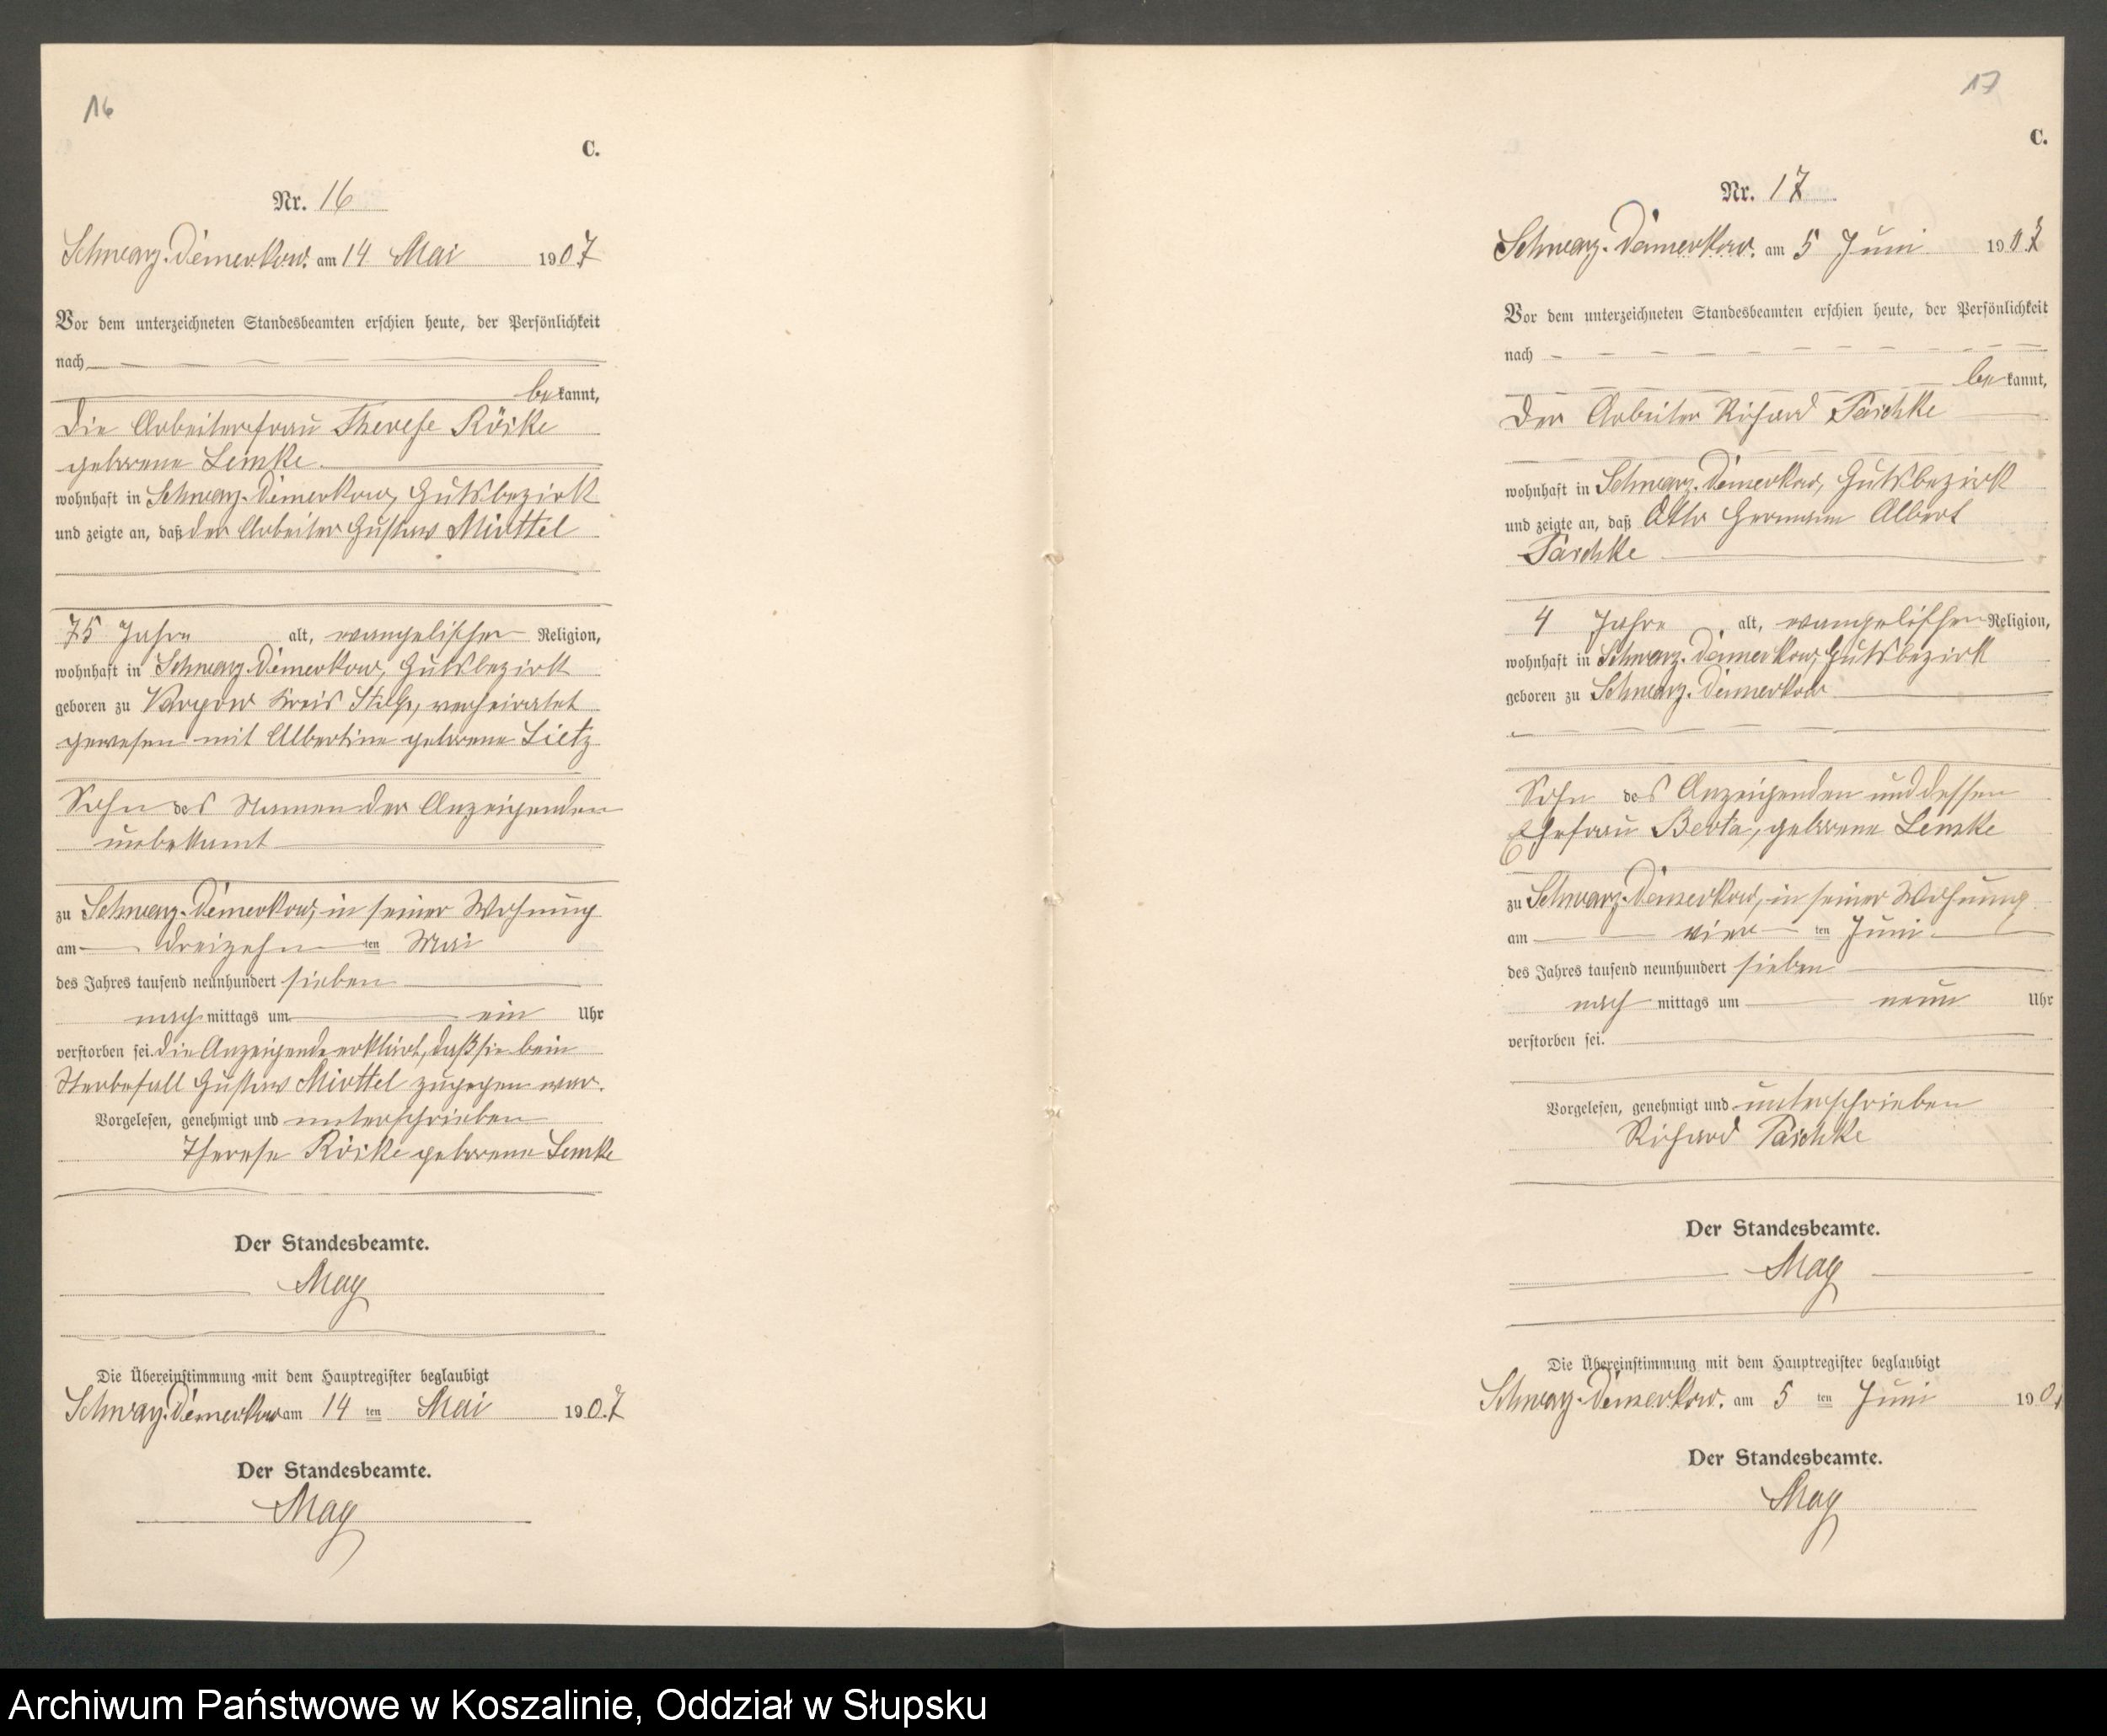 16
C.
Nr. 16
Schwarz-Damerkow. am 14 Mai 1907
Vor dem unterzeichneten Standesbeamten erschien heute, der Persönlichkeit
nach
bekannt,
die Arbeiterfrau Therese Röske
geborene Lemke
wohnhaft in Schwarz-Damerkow, Gutsbezirk
und zeigte an, daß der Arbeiter Gustav Mirttel
75 Jahre alt, evangelischer Religion,
wohnhaft in Schwarz-Damerkow, Gutsbezirk
geboren zu Vargow Kreis Stolp, verheiratet
gewesen mit Albertine geborene Lietz
Sohn des Namen der Anzeigenden
unbekannt
zu Schwarz-Damerkow, in seiner Wohnung
am dreizehnten Mai
des Jahres tausend neunhundert sieben
nachmittags um ein Uhr
verstorben sei. die Anzeigende erklärt, daß sie beim
Sterbefall Gustav Mirttel zugegen war.
Vorgelesen, genehmigt und unterschrieben
Therese Röske geborene Lemke
Der Standesbeamte.
May
Die Übereinstimmung mit dem Hauptregister beglaubigt
Schwarz-Damerkow am 14 ten Mai 1907
Der Standesbeamte.
May
17
C.
Nr. 17
Schwarz-Damerkow. am 5 Juni 1907
Vor dem unterzeichneten Standesbeamten erschien heute, der Persönlichkeit
nach
bekannt,
der Arbeiter Richard Paschke
wohnhaft in Schwarz-Damerkow, Gutsbezirk
und zeigte an, daß Otto Hermann Albert
Paschke
4 Jahre alt, evangelischer Religion,
wohnhaft in Schwarz-Damerkow, Gutsbezirk
geboren zu Schwarz-Damerkow
Sohn des Anzeigenden und dessen
Ehefrau Berta, geborene Lemke
zu Schwarz-Damerkow, in seiner Wohnung
am vierten Juni
des Jahres tausend neunhundert sieben
nachmittags um neun Uhr
verstorben sei.
Vorgelesen, genehmigt und unterschrieben
Richard Paschke
Der Standesbeamte.
May
Die Übereinstimmung mit dem Hauptregister beglaubigt
Schwarz-Damerkow. am 5 ten Juni 190
Der Standesbeamte.
May
Archiwum Państwowe w Koszalinie, Oddział w Słupsku